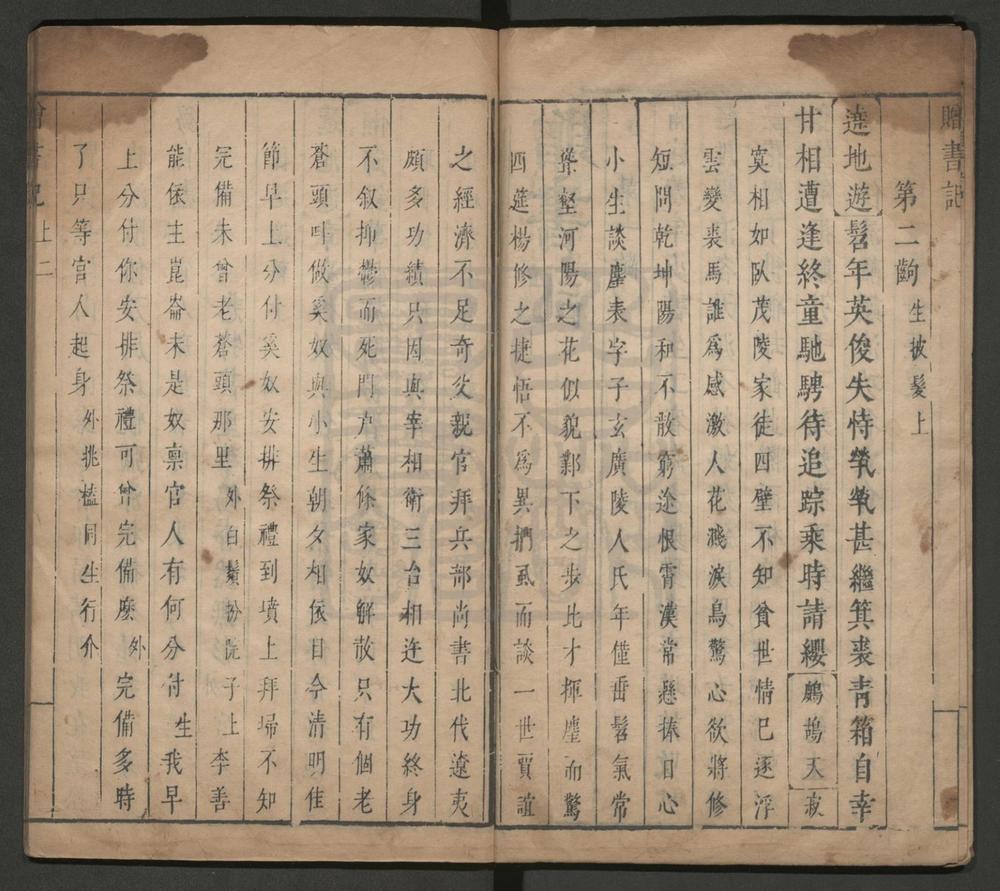 贈書記
第二齣 生披髮上
遶地遊 髫年英俊失恃煢煢甚繼箕裘青箱自幸
甘相遭逢終童馳騁待追踪乘時請纓 鷓鴣天 寂
寞相如臥茂陵家徒四壁不知貧世情已逐浮
雲變裘馬誰爲感激人花濺淚鳥驚心欲將修
短問乾坤陽和不散窮途恨霄漢常懸捧日心
小生談塵表字子玄廣陵人氏年僅垂髫氣常
藥壑河陽之花似貌鄴下之步比才揮麈而驚
四筵楊修之捷悟不爲異捫虱而談一世賈誼
之經濟不足奇父親官拜兵部尚書北代遼夷
頗多功績只因與宰相衛三台相迕大功終身
不叙抑鬱而死門户蕭條家奴解散只有個老
蒼頭叫做奚奴與小生朝夕相依目今清明佳
節早上分付奚奴安排祭禮到墳上拜埽不知
完備未曾老蒼頭那里 外白鬚扮院子上 李善
能依主崑崙未是奴禀官人有何分付 生 我早
上分付你安排祭禮可曾完備麽 外 完備多時
了只等官人起身 外挑榼同生行介
贈書記 上 二